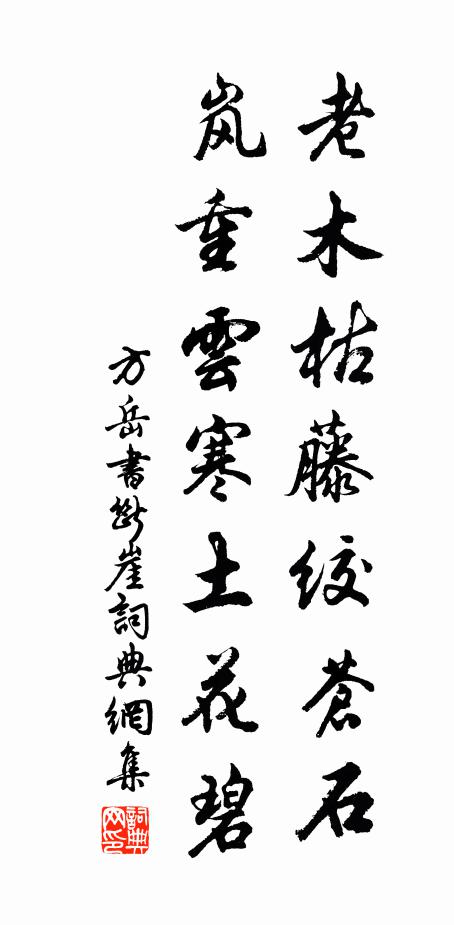 老木枯藤絞蒼石
嵐重雲寒土花碧
方岳書斷崖詞典網集
詞典网印